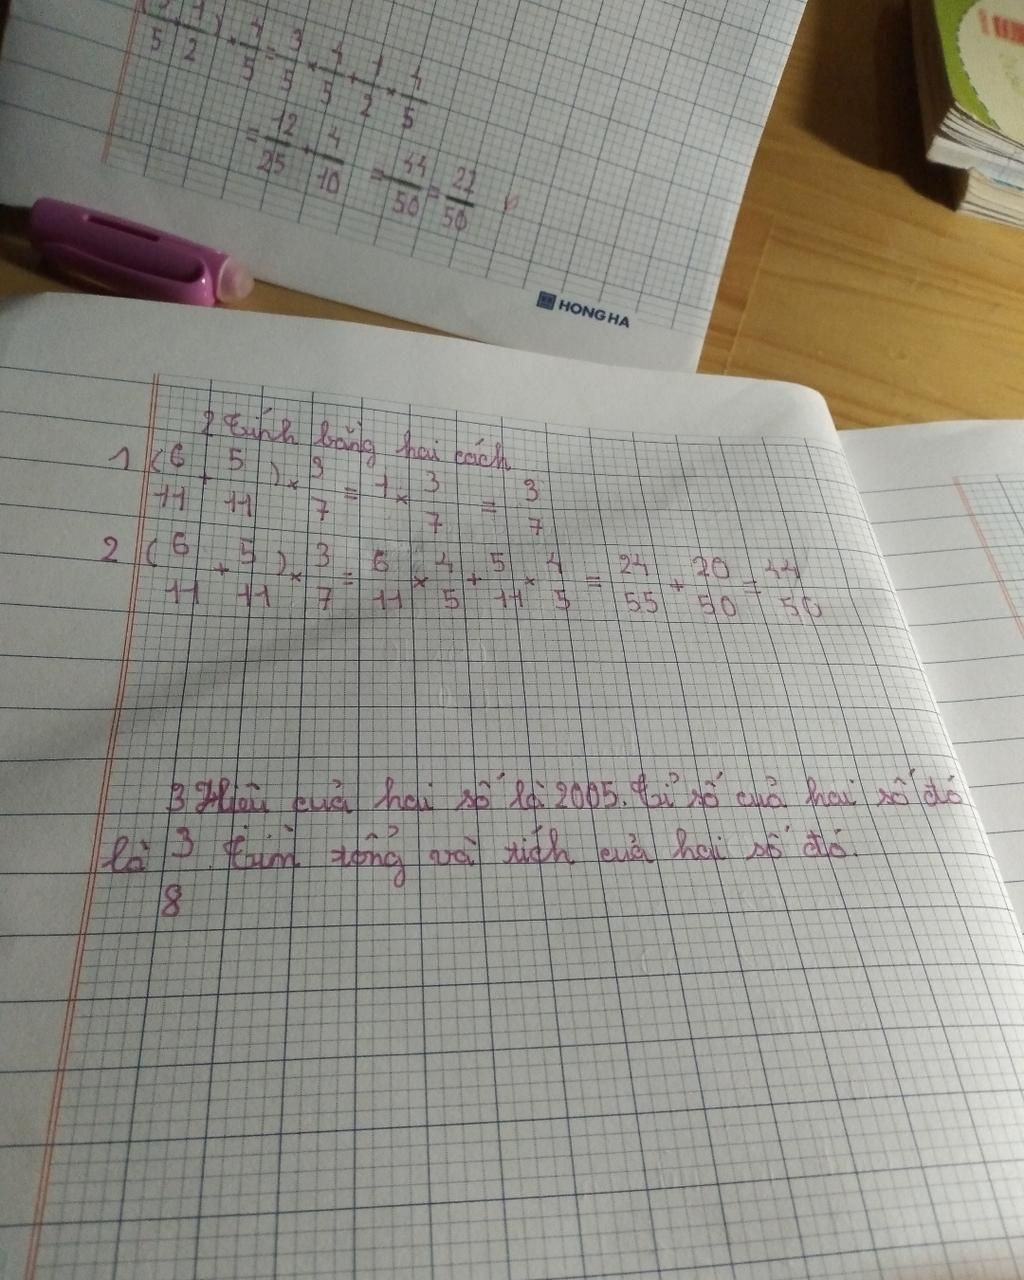 5 2 ) × 4/5 = 3/5 × 4/5 + 1/2 × 4/5
= 12/25 + 4/10 = 44/50 = 22/50
HONG HA
2 Tính bằng hai cách
1 (6/11 + 5/11) × 3/7 = 1 × 3/7 = 3/7
2 (6/11 + 5/11) × 3/7 = 6/11 × 4/5 + 5/11 × 4/5 = 24/55 + 20/50 = 44/50
3 Hiệu của hai số là 2005. Tỉ số của hai số đó
là 3/8. Tìm tổng và tích của hai số đó.